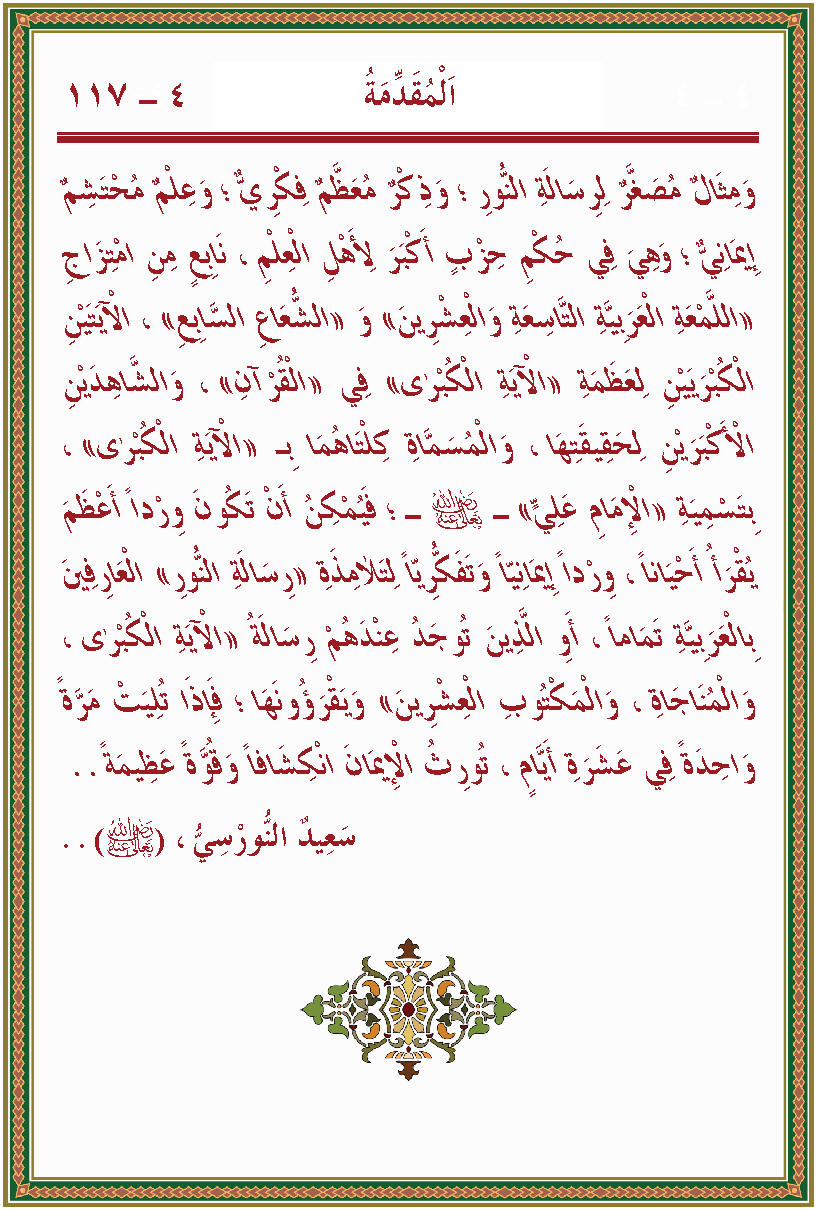 ٤ – ١١٧
اَلْمُقَدِّمَةُ
وَمِثَالٌ مُصَغَّرٌ لِرِسَالَةِ النُّورِ ؛ وَذِكْرٌ مُعَظَّمٌ فِكْرِيٌّ ؛ وَعِلْمٌ مُحْتَشِمٌ
إِيمَانِيٌّ ؛ وَهِيَ فِي حُكْمِ حِزْبٍ أَكْبَرَ لِأَهْلِ الْعِلْمِ ، نَابِعٍ مِنِ امْتِزَاجِ
«اللَّمْعَةِ الْعَرَبِيَّةِ التَّاسِعَةِ وَالْعِشْرِينَ» وَ «الشُّعَاعِ السَّابِعِ» ، الْآيَتَيْنِ
الْكُبْرَيَيْنِ لِعَظَمَةِ «الْآيَةِ الْكُبْرٰى» فِي «الْقُرْآنِ» ، وَالشَّاهِدَيْنِ
الْأَكْبَرَيْنِ لِحَقِيقَتِهَا ، وَالْمُسَمَّاةِ كِلْتَاهُمَا بِـ «الْآيَةِ الْكُبْرٰى» ،
بِتَسْمِيَةِ «الْإِمَامِ عَلِيٍّ» – رَضِيَ اللهُ تَعَالَى عَنْهُ – ؛ فَيُمْكِنُ أَنْ تَكُونَ وِرْداً أَعْظَمَ
يُقْرَأُ أَحْيَاناً ، وِرْداً إِيمَانِيّاً وَتَفَكُّرِيّاً لِتَلَامِذَةِ «رِسَالَةِ النُّورِ» الْعَارِفِينَ
بِالْعَرَبِيَّةِ تَمَاماً ، أَوِ الَّذِينَ تُوجَدُ عِنْدَهُمْ رِسَالَةُ «الْآيَةِ الْكُبْرٰى ،
وَالْمُنَاجَاةِ ، وَالْمَكْتُوبِ الْعِشْرِينَ» وَيَقْرَؤُونَهَا ؛ فَإِذَا تُلِيَتْ مَرَّةً
وَاحِدَةً فِي عَشَرَةِ أَيَّامٍ ، تُورِثُ الْإِيمَانَ انْكِشَافاً وَقُوَّةً عَظِيمَةً . .
سَعِيدٌ النُّورْسِيُّ ، (رَضِيَ اللهُ تَعَالَى عَنْهُ) . .